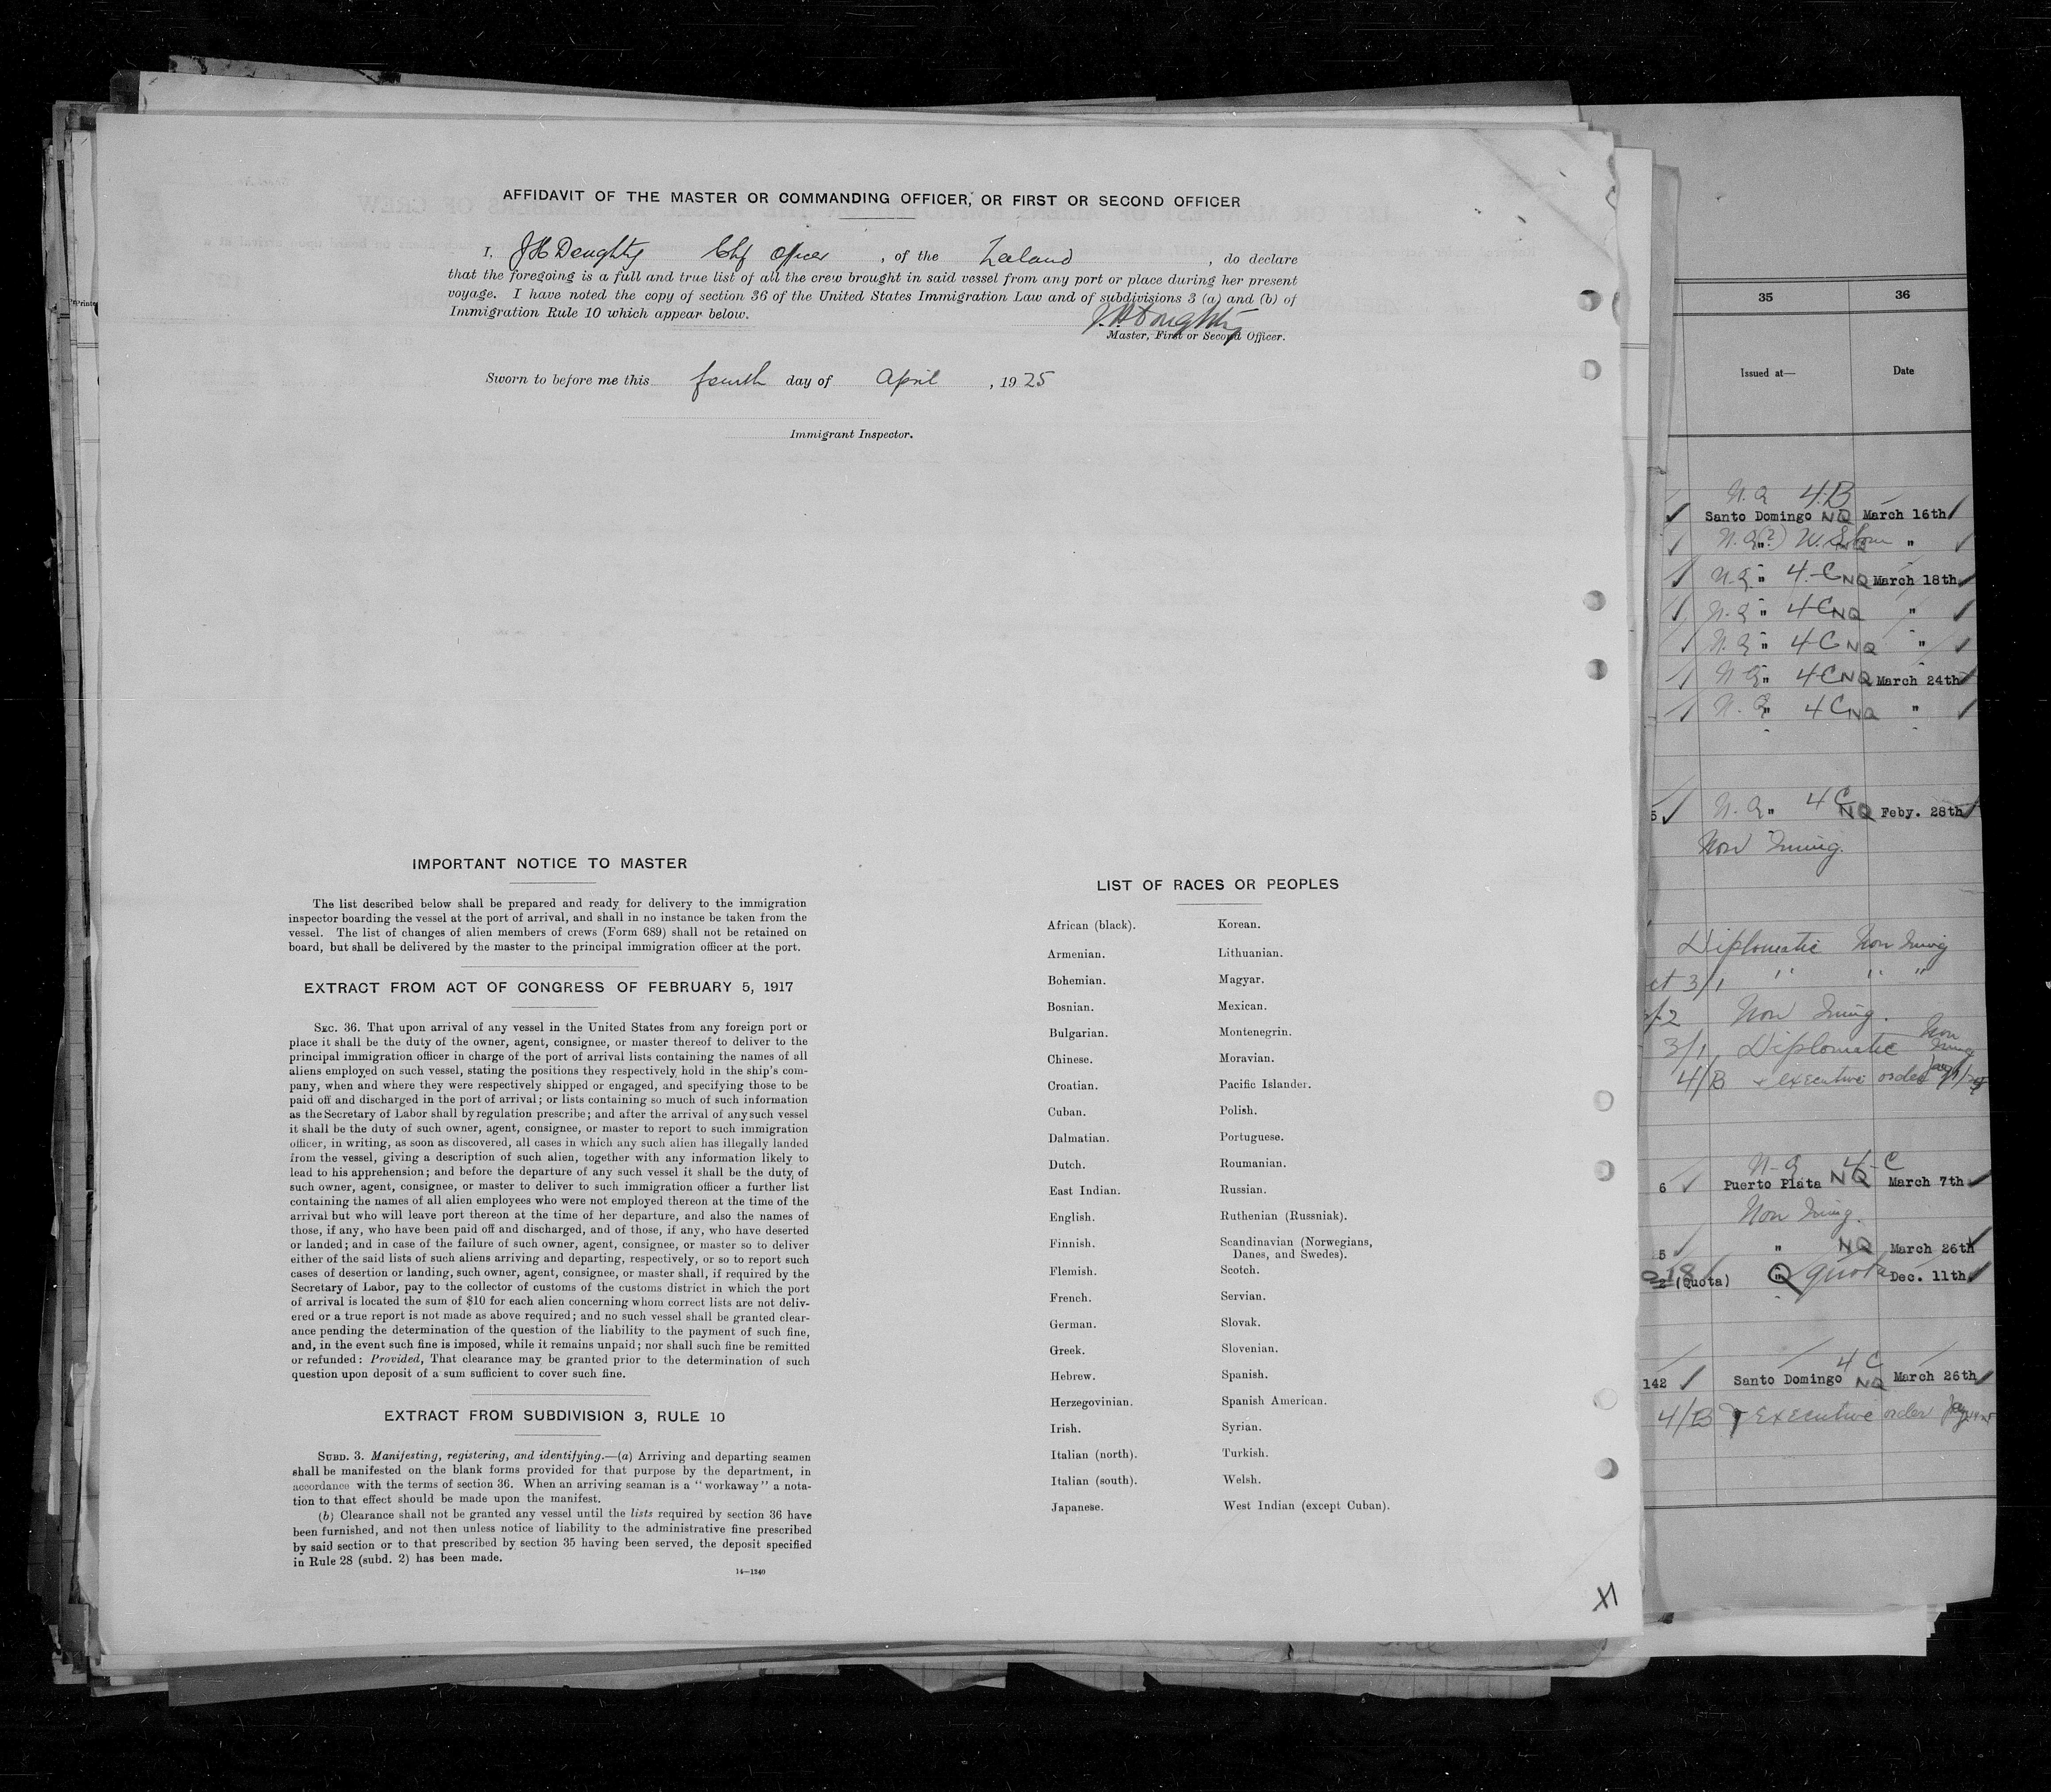 AFFIDAVIT OF THE MASTER OR COMMANDING OFFICER, OR FIRST OR SECOND OFFICER
I, J H Doughty Chf Officer, of the Zeeland, do declare
that the foregoing is a full and true list of all the crew brought in said vessel from any port or place during her present
voyage. I have noted the copy of section 36 of the United States Immigration Law and of subdivisions 3 (a) and (b) of
Immigration Rule 10 which appear below.
J. H Doughty
Master, First or Second Officer.
Sworn to before me this fourth day of April, 1925
Immigrant Inspector.
IMPORTANT NOTICE TO MASTER
The list described below shall be prepared and ready for delivery to the immigration
inspector boarding the vessel at the port of arrival, and shall in no instance be taken from the
vessel. The list of changes of alien members of crews (Form 689) shall not be retained on
board, but shall be delivered by the master to the principal immigration officer at the port.
EXTRACT FROM ACT OF CONGRESS OF FEBRUARY 5, 1917
SEC. 36. That upon arrival of any vessel in the United States from any foreign port or
place it shall be the duty of the owner, agent, consignee, or master thereof to deliver to the
principal immigration officer in charge of the port of arrival lists containing the names of all
aliens employed on such vessel, stating the positions they respectively hold in the ship's com-
pany, when and where they were respectively shipped or engaged, and specifying those to be
paid off and discharged in the port of arrival; or lists containing so much of such information
as the Secretary of Labor shall by regulation prescribe; and after the arrival of any such vessel
it shall be the duty of such owner, agent, consignee, or master to report to such immigration
officer, in writing, as soon as discovered, all cases in which any such alien has illegally landed
from the vessel, giving a description of such alien, together with any information likely to
lead to his apprehension; and before the departure of any such vessel it shall be the duty of
such owner, agent, consignee, or master to deliver to such immigration officer a further list
containing the names of all alien employees who were not employed thereon at the time of the
arrival but who will leave port thereon at the time of her departure, and also the names of
those, if any, who have been paid off and discharged, and of those, if any, who have deserted
or landed; and in case of the failure of such owner, agent, consignee, or master so to deliver
either of the said lists of such aliens arriving and departing, respectively, or so to report such
cases of desertion or landing, such owner, agent, consignee, or master shall, if required by the
Secretary of Labor, pay to the collector of customs of the customs district in which the port
of arrival is located the sum of $10 for each alien concerning whom correct lists are not deliv-
ered or a true report is not made as above required; and no such vessel shall be granted clear-
ance pending the determination of the question of the liability to the payment of such fine,
and, in the event such fine is imposed, while it remains unpaid; nor shall such fine be remitted
or refunded: Provided, That clearance may be granted prior to the determination of such
question upon deposit of a sum sufficient to cover such fine.
EXTRACT FROM SUBDIVISION 3, RULE 10
SUBD. 3. Manifesting, registering, and identifying.—(a) Arriving and departing seamen
shall be manifested on the blank forms provided for that purpose by the department, in
accordance with the terms of section 36. When an arriving seaman is a "workaway" a nota-
tion to that effect should be made upon the manifest.
(b) Clearance shall not be granted any vessel until the lists required by section 36 have
been furnished, and not then unless notice of liability to the administrative fine prescribed
by said section or to that prescribed by section 35 having been served, the deposit specified
in Rule 28 (subd. 2) has been made.
14—1240
LIST OF RACES OR PEOPLES
African (black). Korean.
Armenian. Lithuanian.
Bohemian. Magyar.
Bosnian. Mexican.
Bulgarian. Montenegrin.
Chinese. Moravian.
Croatian. Pacific Islander.
Cuban. Polish.
Dalmatian. Portuguese.
Dutch. Roumanian.
East Indian. Russian.
English. Ruthenian (Russniak).
Finnish. Scandinavian (Norwegians,
Danes, and Swedes).
Flemish. Scotch.
French. Servian.
German. Slovak.
Greek. Slovenian.
Hebrew. Spanish.
Herzegovinian. Spanish American.
Irish. Syrian.
Italian (north). Turkish.
Italian (south). Welsh.
Japanese. West Indian (except Cuban).
XI
35 36
Issued at— Date
N. Q 4.B
Santo Domingo NQ March 16th
N. Q " (?) "
N. Q " 4-C NQ March 18th
N. Q " 4C NQ "
N. Q " 4C NQ "
N Q " 4C NQ March 24th
N. Q " 4C NQ "
5 N. Q " 4C NQ Feby. 28th
Non Immig.
Diplomatic Non Immig
3/1 " " "
Non Immig.
3/1, Diplomatic Non Immig
4/B + executive order
N-Q 4-C
6 Puerto Plata NQ March 7th
Non Immig.
5 " NQ March 26th
2 (Quota) " Q quota Dec. 11th
4 C
142 Santo Domingo NQ March 26th
4/B + executive order